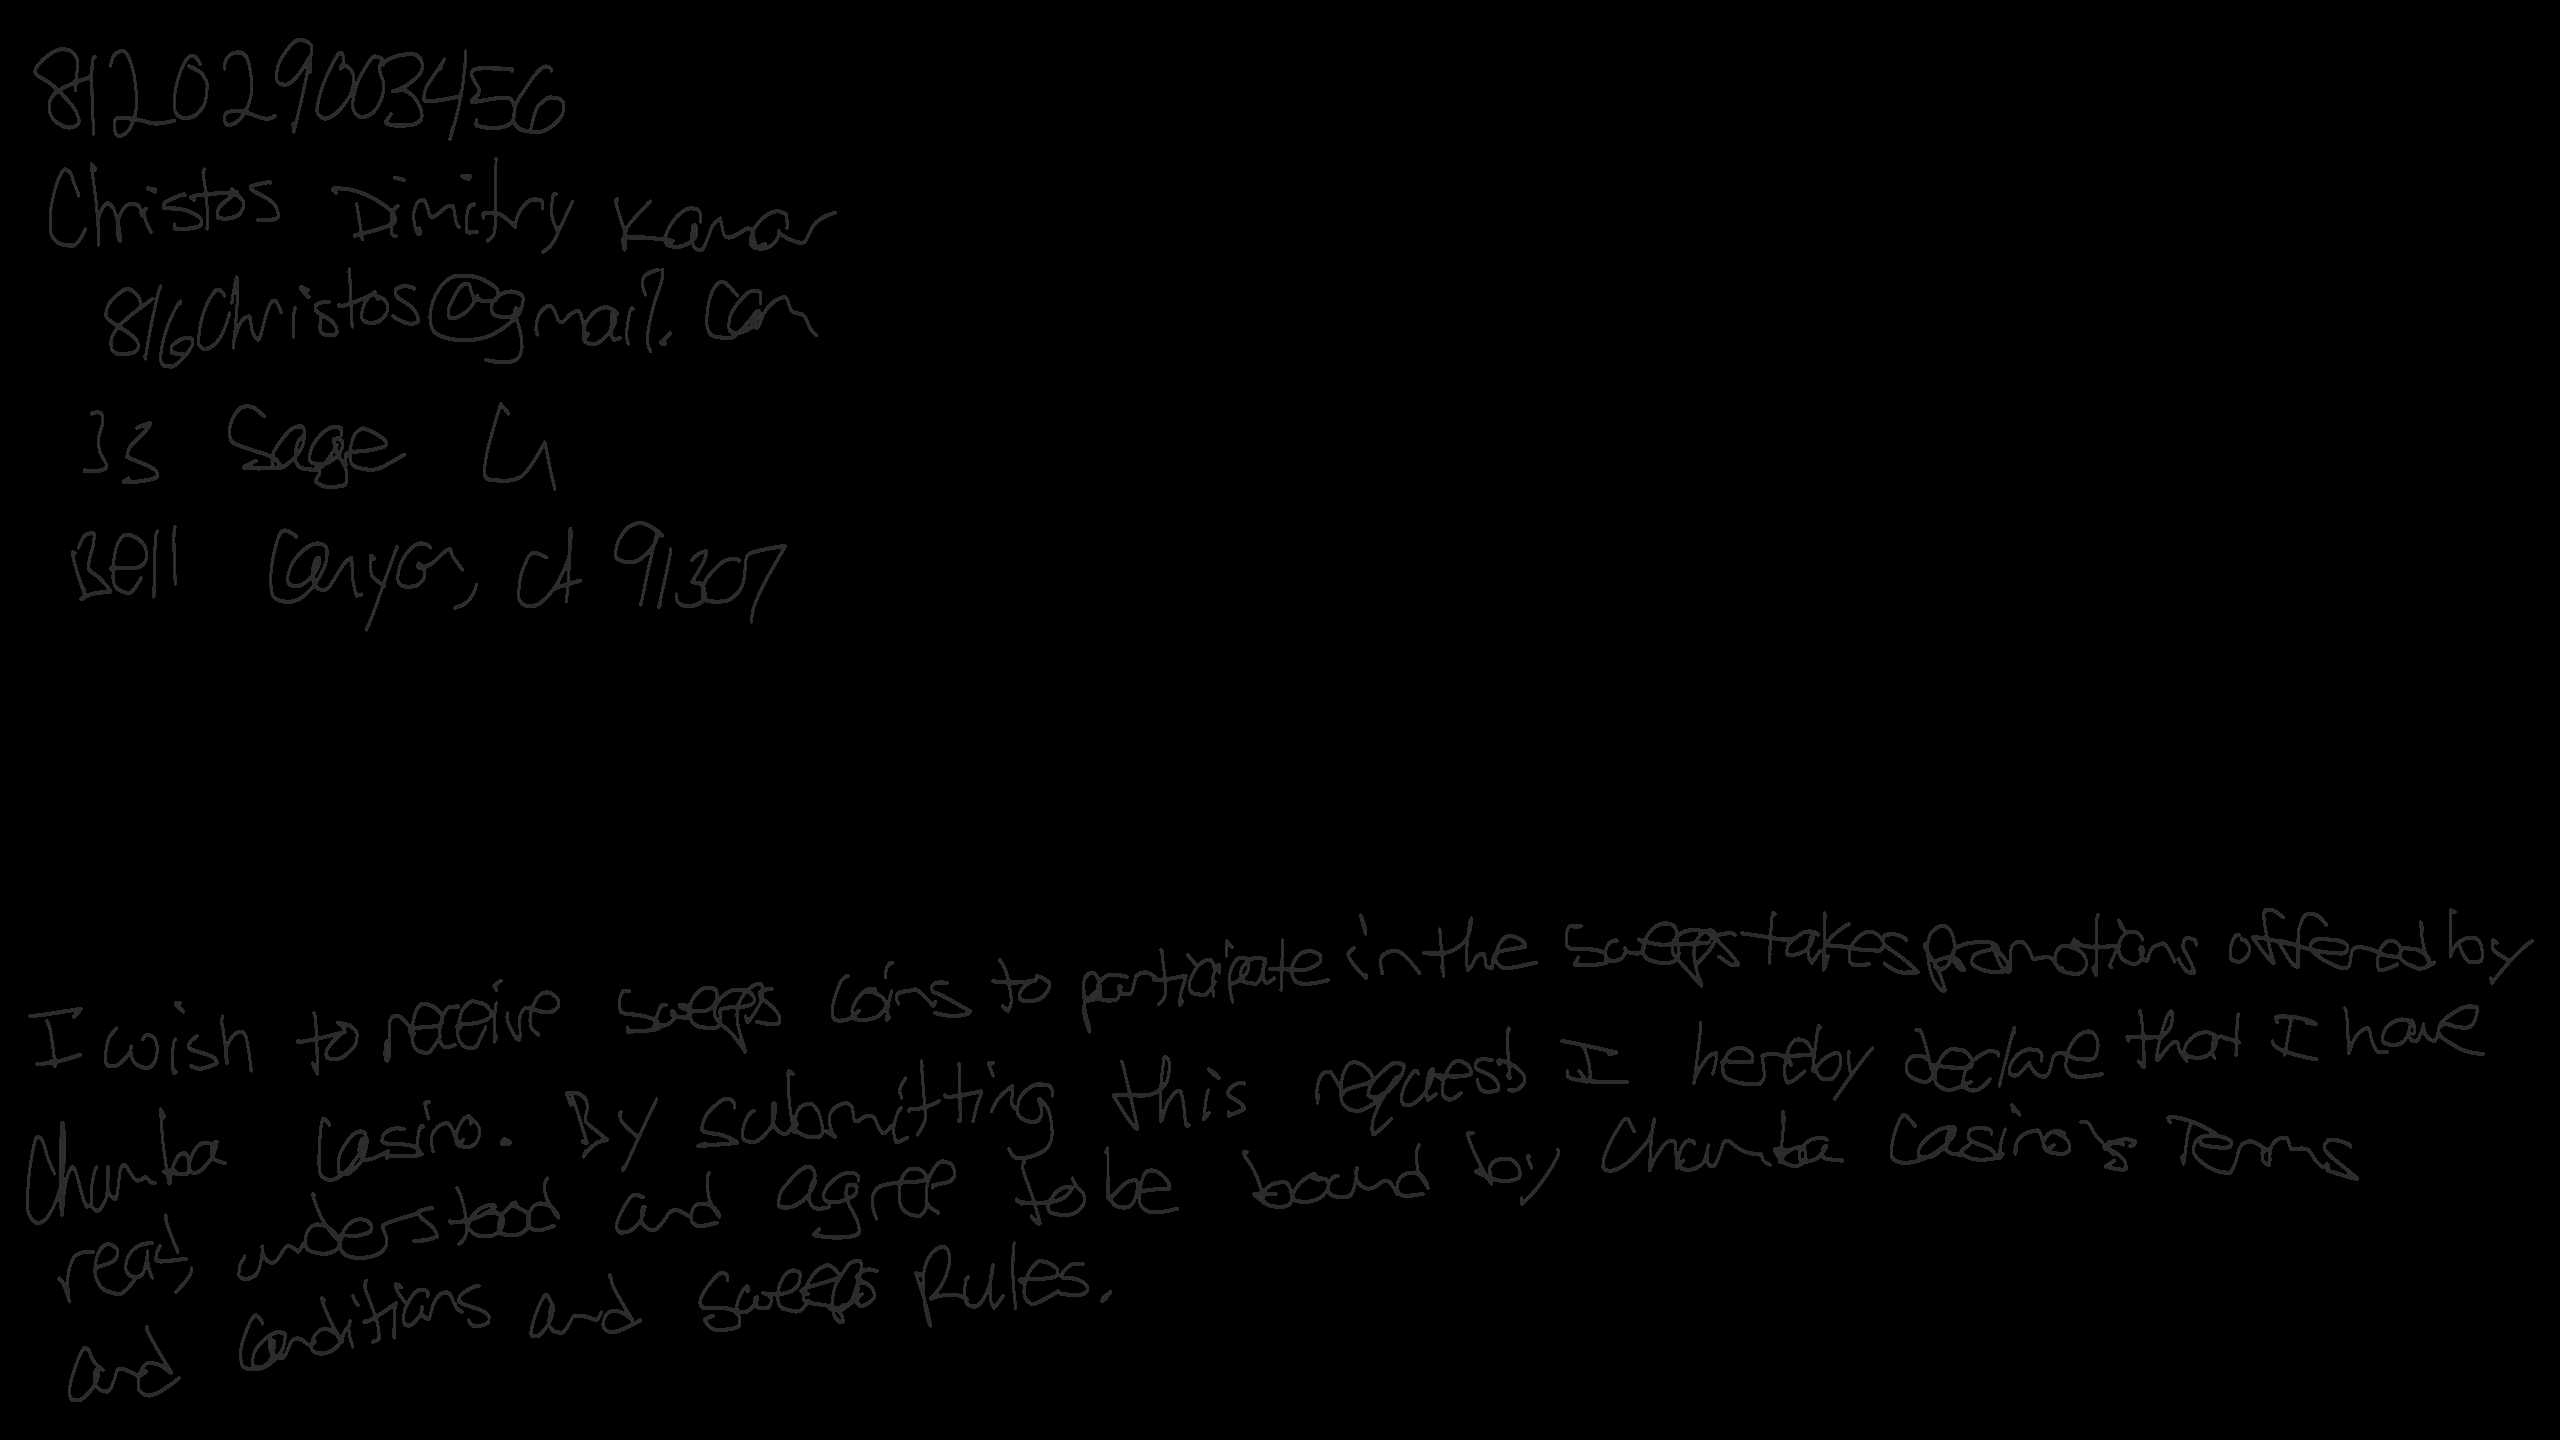 812029003456
Christos Dimitry Kamar
816Christos@gmail.com
33 Sage Ln
Bell Canyon, CA 91307
I wish to receive sweeps coins to participate in the sweepstakes promotions offered by
Chumba Casino. By submitting this request I hereby declare that I have
read, understood and agree to be bound by Chumba Casino's Terms
and Conditions and Sweeps Rules.